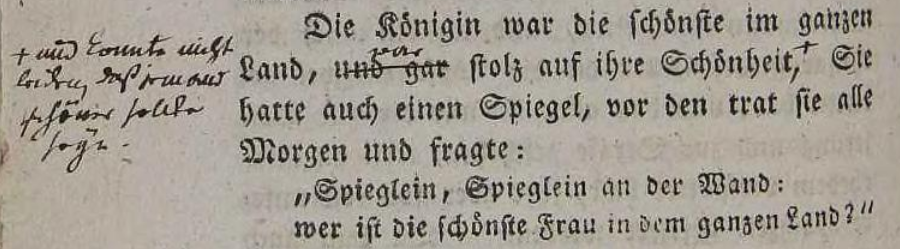 + und konnte nicht
leiden, daß jemand
schöner sollte
seyn.
Die Königin war die schönste im ganzen
war
Land, und gar stolz auf ihre Schönheit,+ Sie
hatte auch einen Spiegel, vor den trat sie alle
Morgen und fragte:
„Spieglein, Spieglein an der Wand:
wer ist die schönste Frau in dem ganzen Land?“